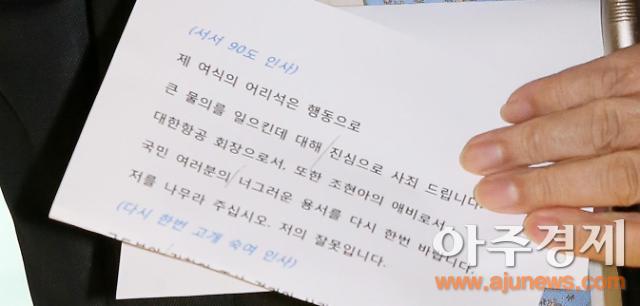 (서서 90도 인사)
제 여식의 어리석은 행동으로
큰 물의를 일으킨데 대해 진심으로 사죄 드립니다.
대한항공 회장으로서, 또한 조현아의 애비로서
국민 여러분의 너그러운 용서를 다시 한번 바랍니다.
저를 나무라 주십시오. 저의 잘못입니다.
(다시 한번 고개 숙여 인사)
아주경제
www.ajunews.com